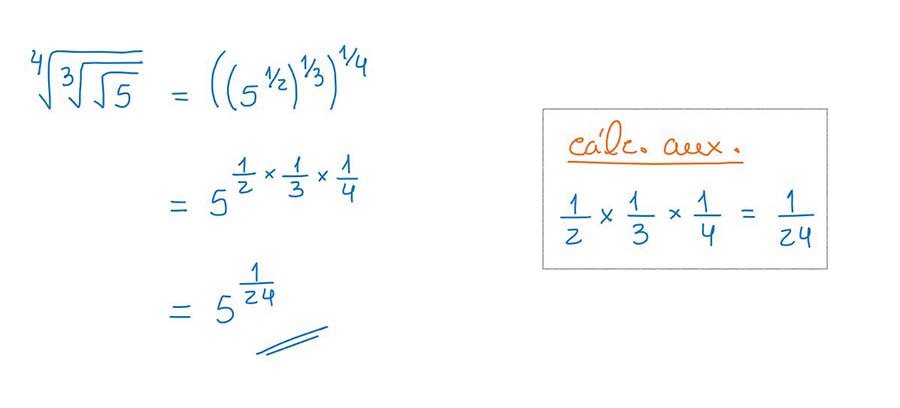 ∜∛√5 = ((5^1/2)^1/3)^1/4
= 5^(1/2 × 1/3 × 1/4)
= 5^(1/24)
cálc. aux.
1/2 × 1/3 × 1/4 = 1/24